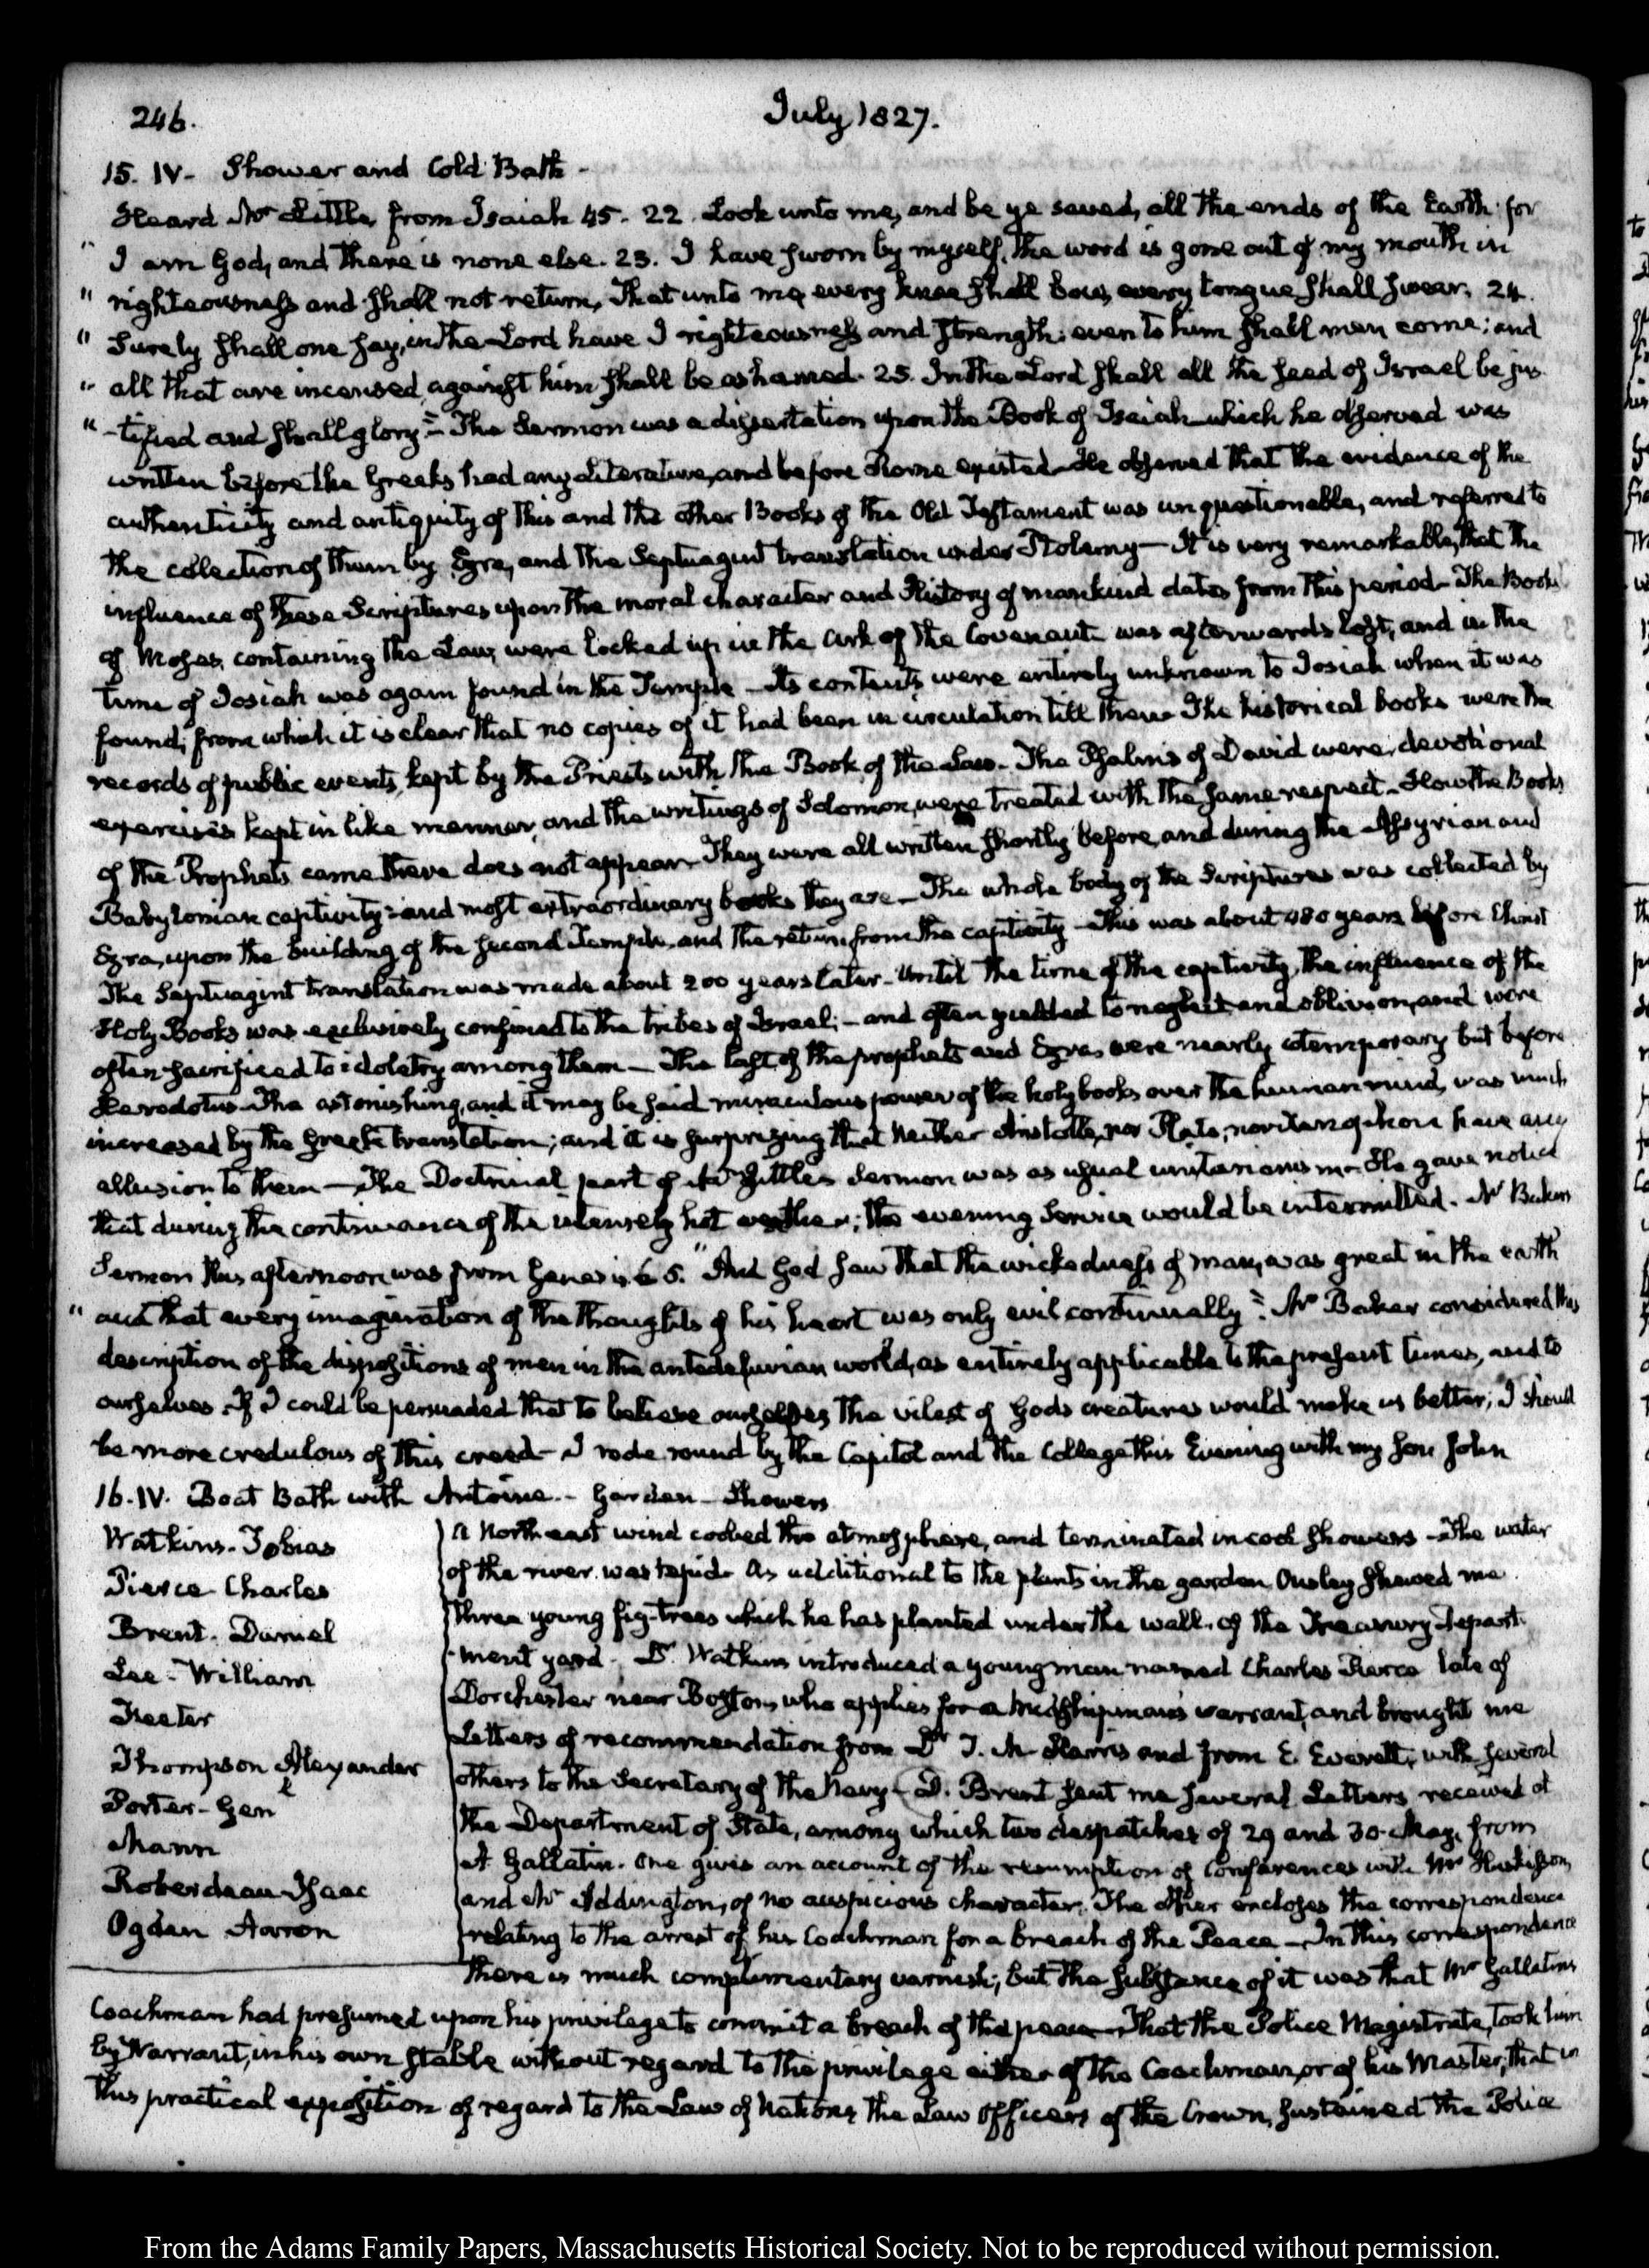 246.
July 1827.
15. IV. Shower and Cold Bath -
Heard Mr Little, from Isaiah 45. 22. Look unto me, and be ye saved, all the ends of the Earth: for
" I am God, and there is none else. 23. I have sworn by myself, the word is gone out of my mouth in
" righteousness and shall not return, That unto me every knee shall bow, every tongue shall swear. 24.
" Surely shall one say, in the Lord have I righteousness and strength: even to him shall men come; and
" all that are incensed against him shall be ashamed. 25. In the Lord shall all the seed of Israel be jus
" -tified and shall glory" - The Sermon was a dissertation upon the Book of Isaiah which he observed was
written before the Greeks had any Literature, and before Rome existed - He observed that the evidence of the
authenticity and antiquity of this and the other Books of the Old Testament was unquestionable, and referred to
the collection of them by Ezra, and the Septuagint translation under Ptolemy - It is very remarkable, that the
influence of these Scriptures upon the moral character and History of mankind dates from this period - The Books
of Moses, containing the Law, were locked up in the Ark of the Covenant - was afterwards lost, and in the
time of Josiah was again found in the Temple - Its contents were entirely unknown to Josiah when it was
found; from which it is clear that no copies of it had been in circulation till then - The historical books were the
records of public events, kept by the Priests with the Book of the Law - The Psalms of David were devotional
exercises kept in like manner, and the writings of Solomon, were treated with the same respect - How the Books
of the Prophets came there does not appear - They were all written shortly before, and during the Assyrian and
Babylonian captivity: and most extraordinary books they are - The whole body of the Scriptures was collected by
Ezra, upon the building of the second Temple, and the return from the captivity - This was about 480 years before Christ
The Septuagint translation was made about 200 years later - Until the time of the captivity, the influence of the
Holy Books was exclusively confined to the tribes of Israel; - and often yielded to neglect and oblivion, and were
often sacrificed to idolatry among them - The last of the prophets and Ezra, were nearly cotemporary but before
Herodotus - The astonishing, and it may be said miraculous power of the holy books over the human mind, was much
increased by the Greek translation; and it is surprizing that neither Aristotle, nor Plato, nor Xenophon have any
allusion to them - The Doctrinal part of Mr Little's Sermon was as usual unitarianism - He gave notice
that during the continuance of the intensely hot weather; the evening Service would be intermitted. Mr Bakers
Sermon this afternoon was from Genesis 6 5. "And God saw that the wickedness of man, was great in the earth
" and that every imagination of the thoughts of his heart was only evil continually": Mr Baker considered this
description of the dispositions of men in the antediluvian world, as entirely applicable to the present times, and to
ourselves. If I could be persuaded that to believe ourselves the vilest of Gods creatures would make us better, I should
be more credulous of this creed - I rode round by the Capitol and the College this Evening with my Son John
16. IV. Boat Bath with Antoine. - Garden - Showers
Watkins. Tobias
Pierce Charles
Brent. Daniel
Lee - William
Thompson Alexander
Porter - Genl
Mann
Roberdeau Isaac
Ogden Aaron
A North east wind cooled the atmosphere, and terminated in cool showers - The water
of the river was tepid. As additional to the plants in the garden Ousley shewed me
three young fig-trees which he has planted under the wall of the Treasury Depart-
-ment yard. Dr Watkins introduced a young man named Charles Pierce late of
Dorchester near Boston, who applies for a Midshipman's warrant, and brought me
Letters of recommendation from Dr T. M. Harris and from E. Everett, with several
others to the Secretary of the Navy - D. Brent sent me several Letters received at
the Department of State, among which two despatches of 29 and 30 May, from
A Gallatin. One gives an account of the resumption of Conferences with Mr Huskisson,
and Mr Addington, of no auspicious character. The other encloses the correspondence
relating to the arrest of his Coachman for a breach of the Peace - In this correspondence
there is much complimentary varnish; but the substance of it was that Mr Gallatins
Coachman had presumed upon his privilege to commit a breach of the peace - That the Police Magistrate, took him
by Warrant, in his own stable without regard to the privilege either of the Coachman, or of his Master, that in
this practical exposition of regard to the Law of Nations the Law Officers of the Crown, sustained the Police
From the Adams Family Papers, Massachusetts Historical Society. Not to be reproduced without permission.